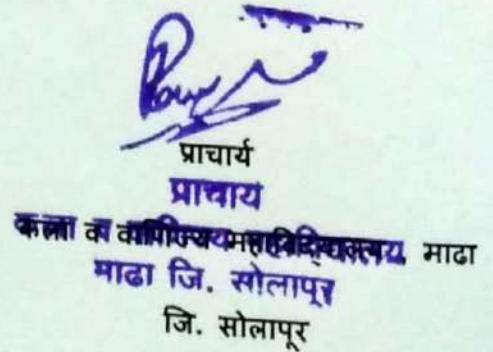 प्राचार्य
प्राचाय
कला व वाणिज्य महाविद्यालय, माढा
माढा जि. सोलापूर
जि. सोलापूर